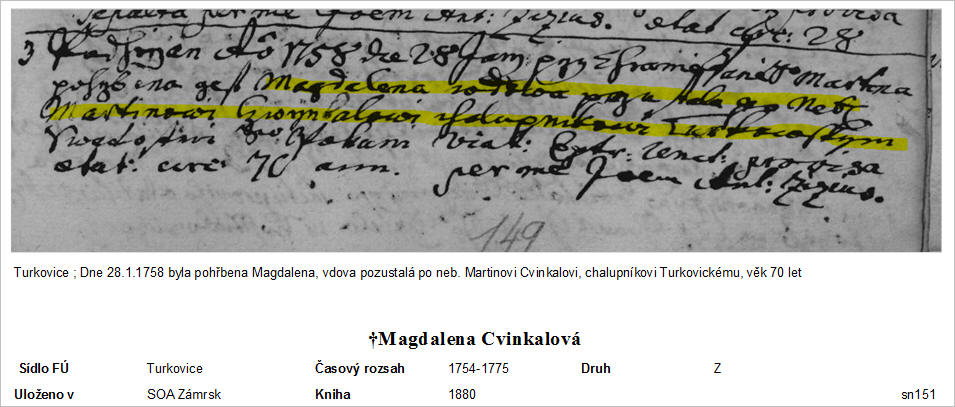 per me Joem Ant: etat: circ: 28
3 Anno 1758 die 28 Jan: przi Chramie Martina
pohrzbena gest Magdalena wdowa pozu stala po Neb:
Martinowi chalupnikowi Turkowskym
Swatostmi Viat: Extr: Unct: provisa
etat: circ: 70 ann. per me Joem Ant:
149
Turkovice ; Dne 28.1.1758 byla pohřbena Magdalena, vdova pozustalá po neb. Martinovi Cvinkalovi, chalupníkovi Turkovickému, věk 70 let
†Magdalena Cvinkalová
Sídlo FÚ Turkovice Časový rozsah 1754-1775 Druh Z
Uloženo v SOA Zámrsk Kniha 1880 sn151